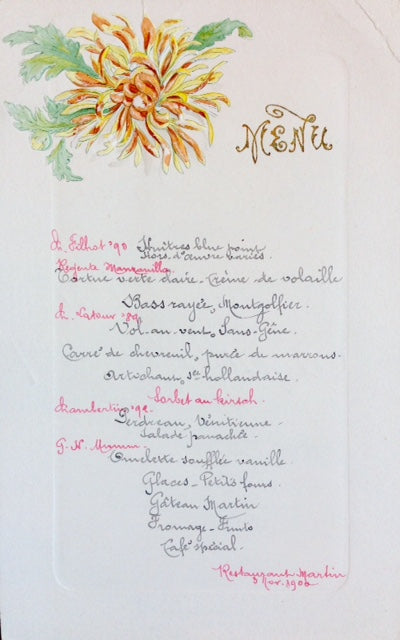 MENU
Ch. Filhot '90 Huîtres blue point
Hors d'œuvre variés.
Regente Manzanilla
Tortue verte claire - Crème de volaille
Bass rayée, Montgolfier.
Ch. Latour '89
Vol-au-vent, Sans-Gêne.
Carré de chevreuil, purée de marrons.
Artichaut, sce hollandaise.
Sorbet au kirsch
Chambertin '92
Perdreau, Vénitienne -
Salade panachée
G. H. Mumm
Omelette soufflée vanille.
Glaces - Petits fours.
Gâteau Martin
Fromage - Fruits
Café spécial.
Restaurant Martin
Nov. 1900